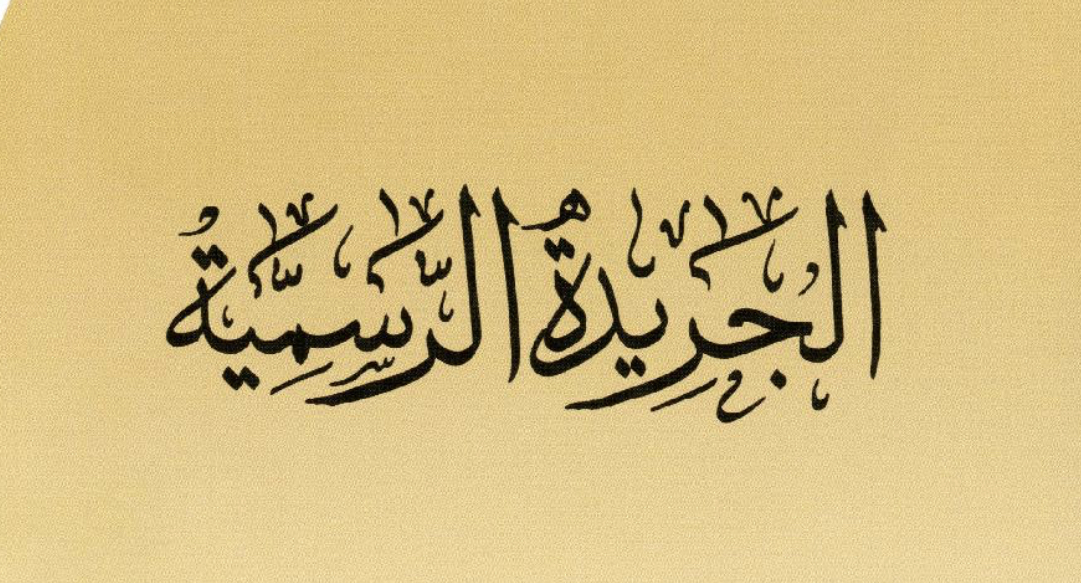 الجريدةُ الرّسِميَّةُ